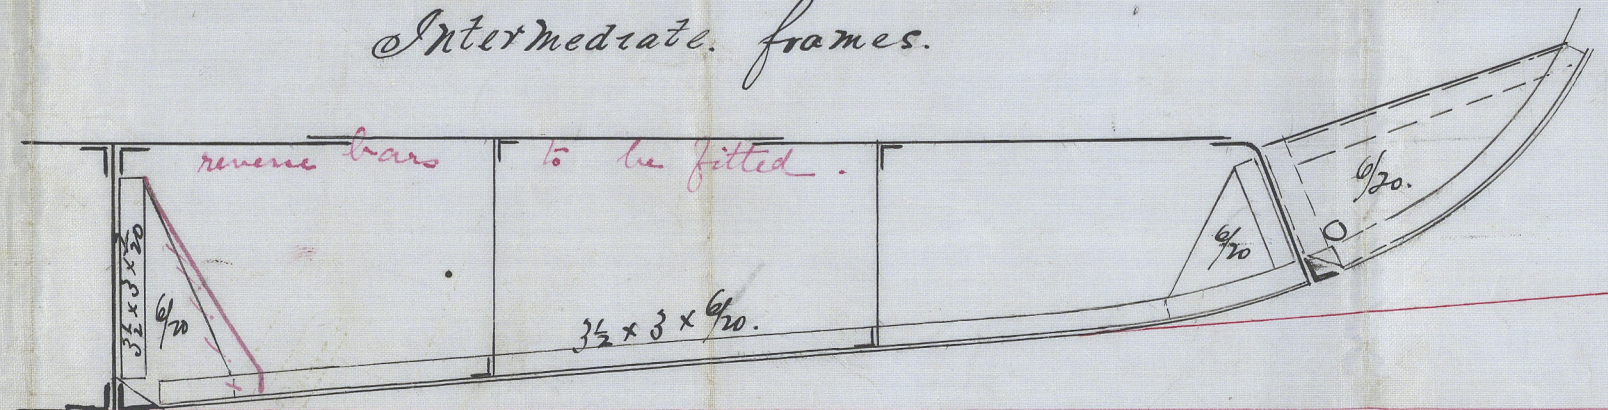 Intermediate. frames.
reverse bars to be fitted.
3½ x 3 x 6/20
6/20
3½ x 3 x 6/20.
6/20
6/20.